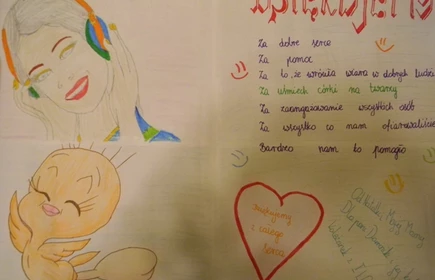 Dziękujemy
Za dobre serce
Za pomoc
Za to, że wróciła wiara w dobrych ludzi
Za uśmiech córki na twarzy
Za zaangażowanie wszystkich osób
Za wszystko co nam ofiarowaliście
Bardzo nam to pomogło
Dziękujemy
z całego
serca
Od
Mamy
Dla pani